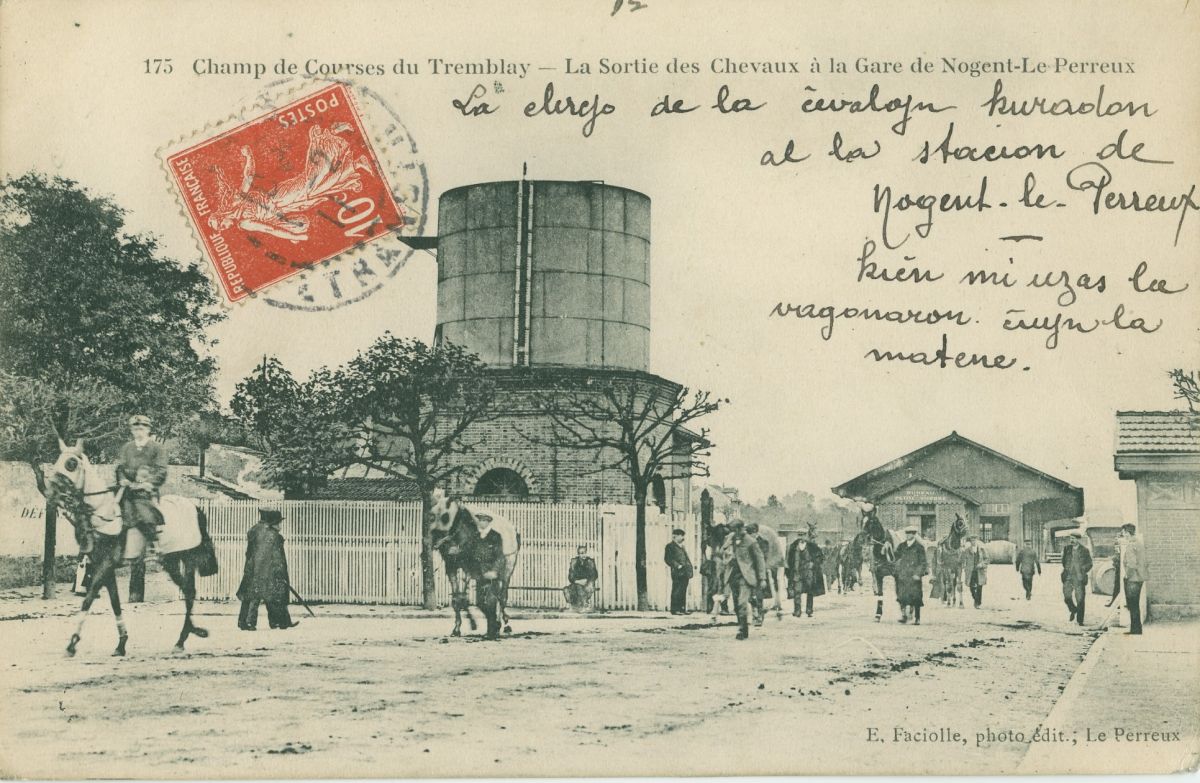 175 Champ de Courses du Tremblay — La Sortie des Chevaux à la Gare de Nogent-Le Perreux
POSTES
REPUBLIQUE FRANÇAISE
10c
La elirejo de la ĉevalojn kuradon
al la stacion de
Nogent-le-Perreux
—
kién mi uzas la
vagonaron ĉiujn la
matene.
BUREAU
DÉP
E. Faciolle, photo édit.; Le Perreux